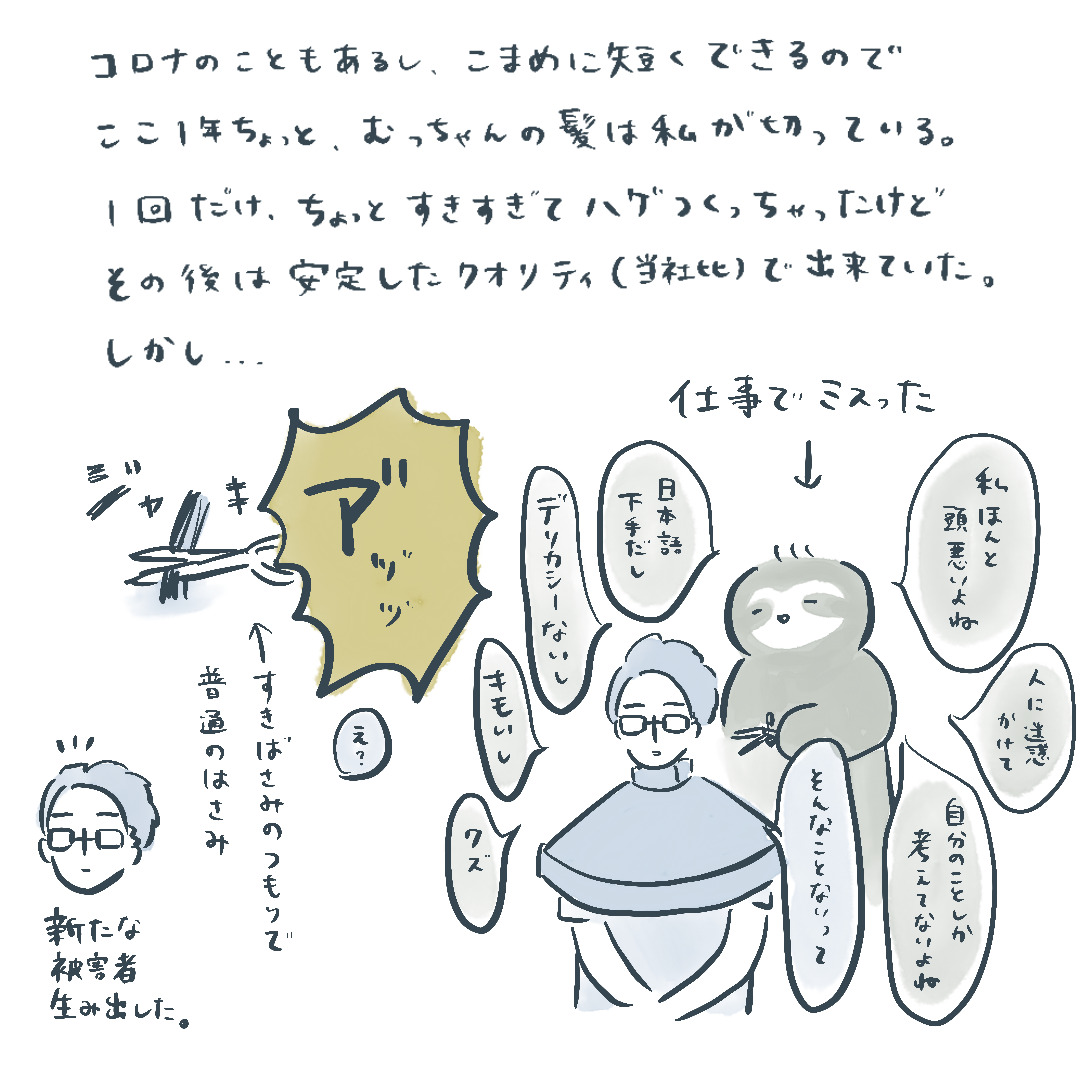 コロナのこともあるし、こまめに短くできるので
ここ1年ちょっと、むっちゃんの髪は私が切っている。
1回だけ、ちょっとすきすぎてハゲつくっちゃったけど
その後は安定したクオリティ(当社比)で出来ていた。
しかし...
仕事でミスった
↓
私ほんと
頭悪いよね
人に迷惑
かけて
自分のことしか
考えてないよね
日本語
下手だし
デリカシーないし
キモいし
クズ
そんなことないって
ジャキ
ア゛ッッ゛
え?
←すきばさみのつもりで
普通のはさみ
新たな
被害者
生み出した。